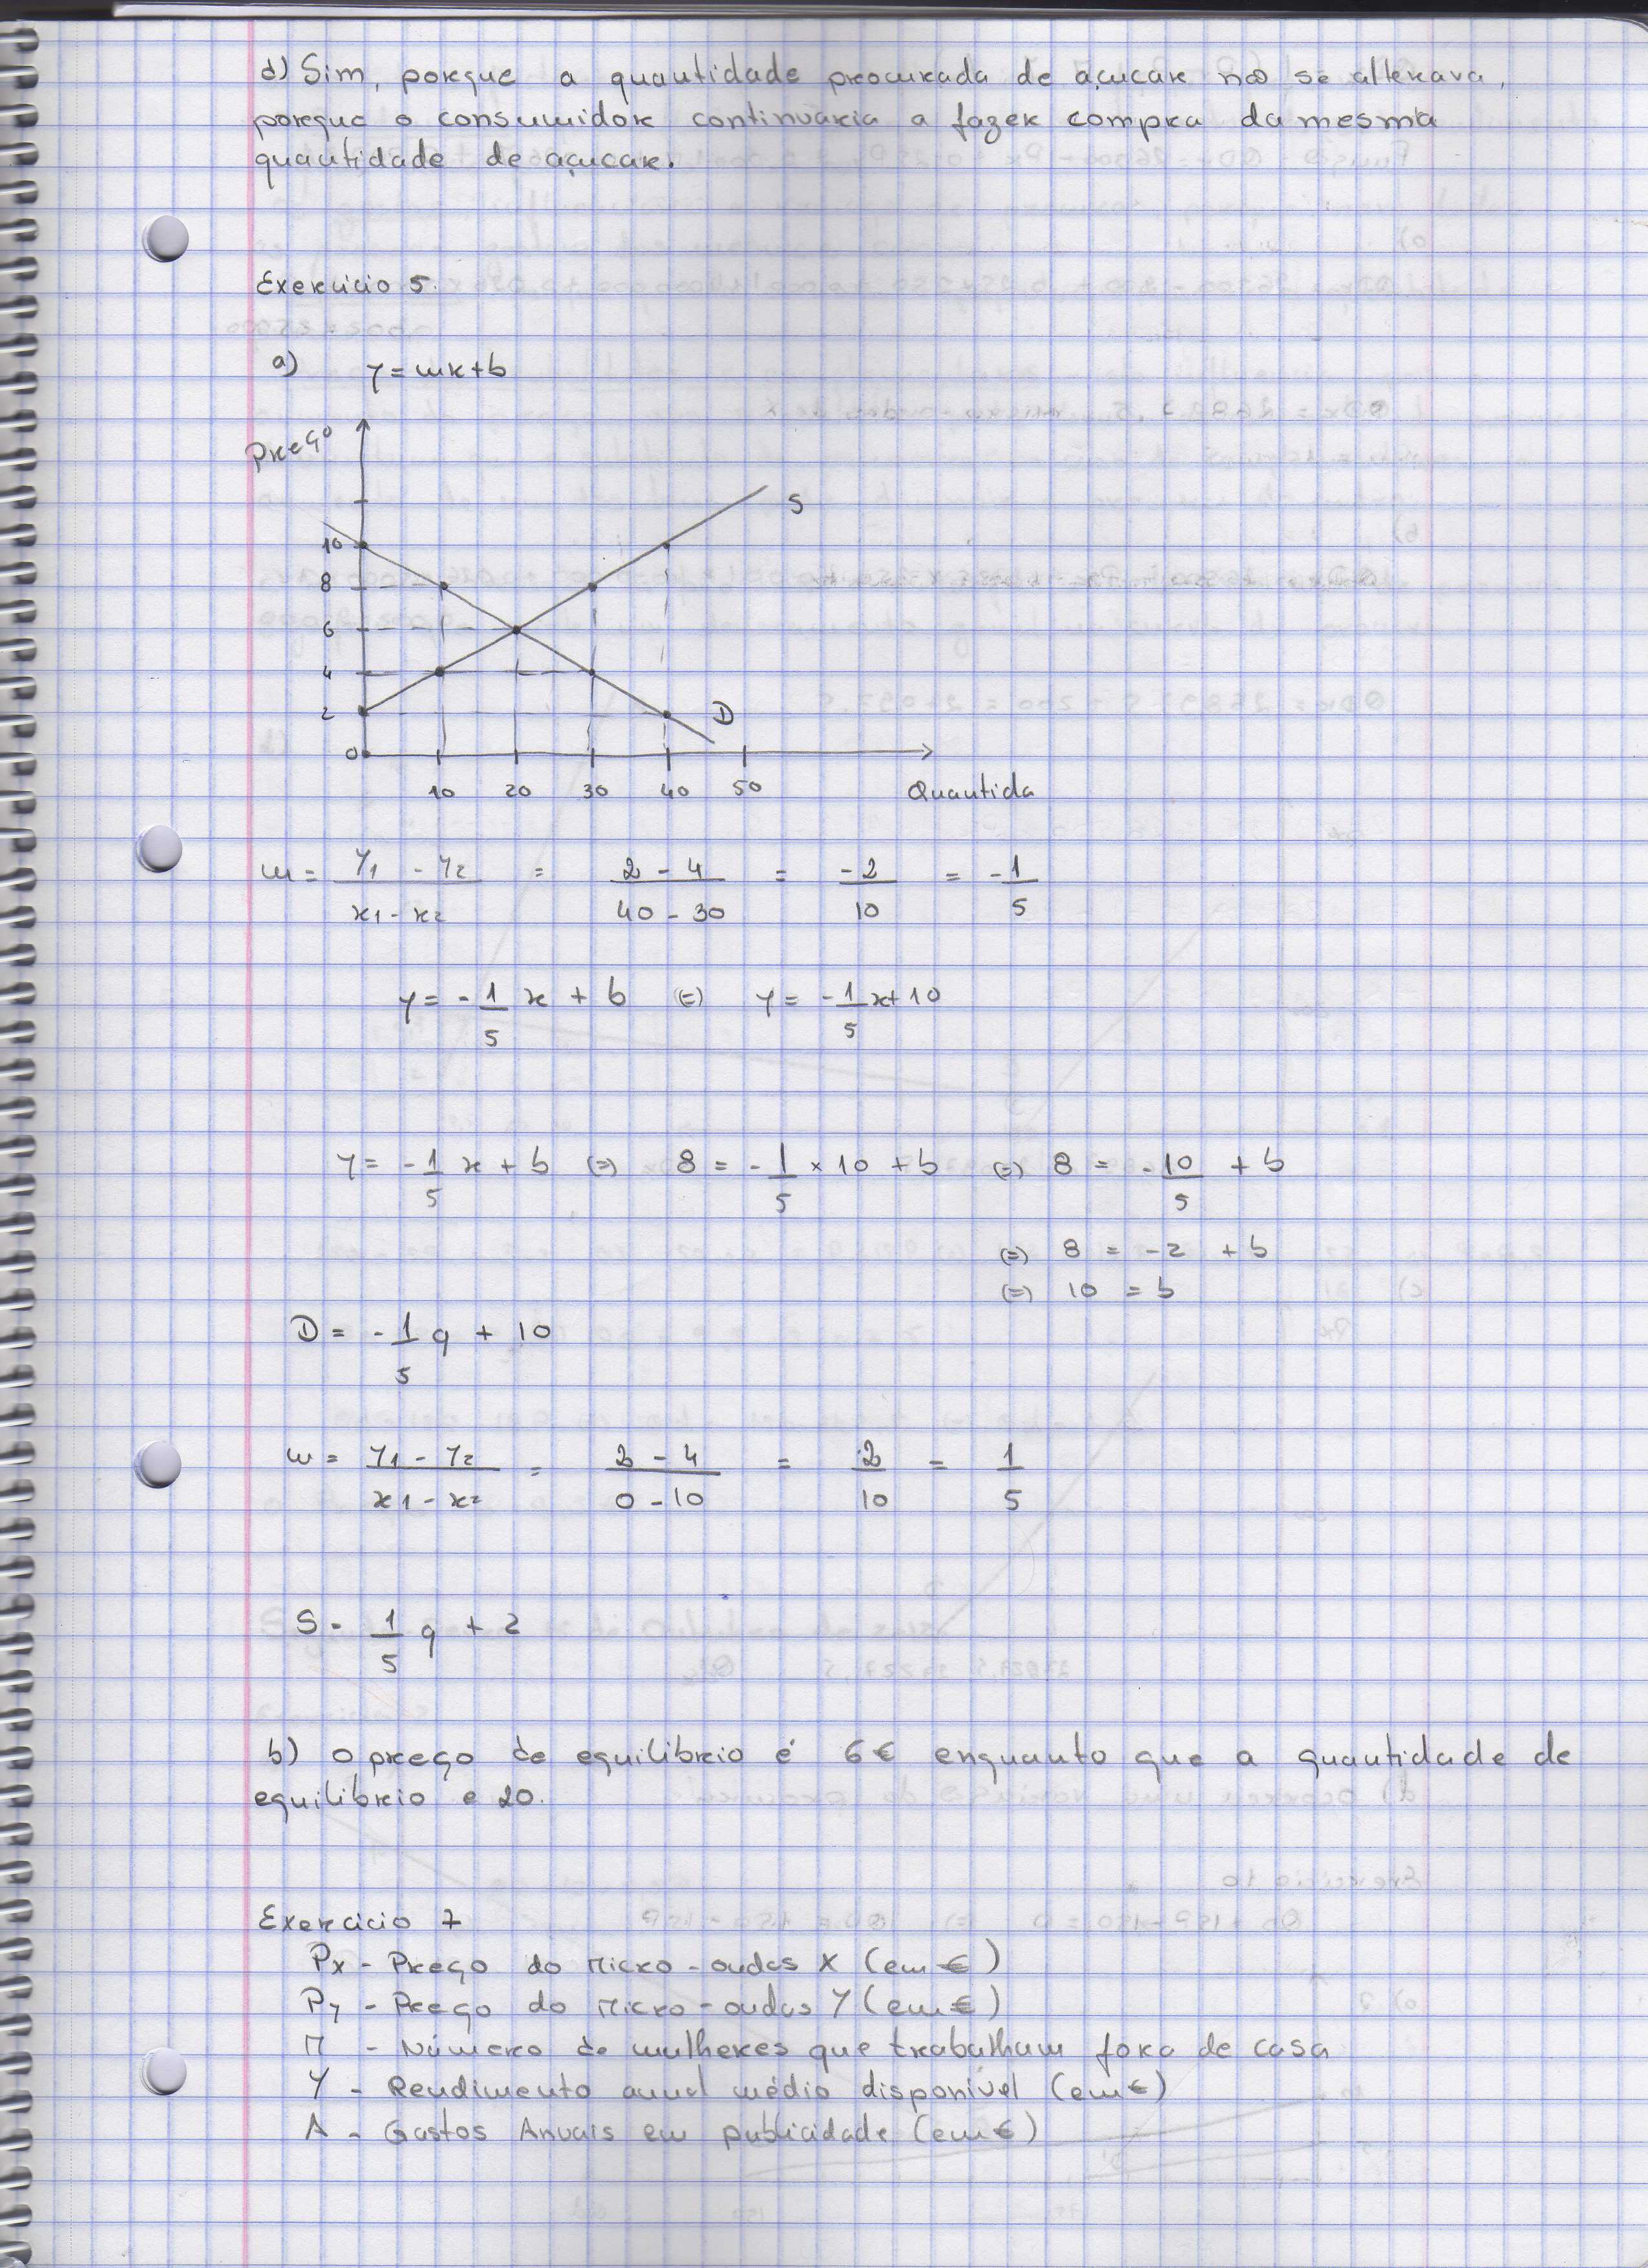 d) Sim, porque a quantidade procurada de açucar não se alterava,
porque o consumidor continuaria a fazer compra da mesma
quantidade de açucar.
Exercicio 5.
a) y = mx + b
Preço
S
10
8
6
4
2
D
0
10 20 30 40 50
Quantida
m = y1 - y2 / x1 - x2 = 2 - 4 / 40 - 30 = -2 / 10 = -1 / 5
y = -1/5 x + b (=) y = -1/5 x + 10
y = -1/5 x + b (=) 8 = -1/5 × 10 + b (=) 8 = -10/5 + b
(=) 8 = -2 + b
(=) 10 = b
D = -1/5 q + 10
m = y1 - y2 / x1 - x2 = 2 - 4 / 0 - 10 = 2 / 10 = 1 / 5
S = 1/5 q + 2
b) O preço de equilibrio é 6€ enquanto que a quantidade de
equilibrio e 20.
Exercicio 7
Px - Preço do Micro-ondas X (em €)
Py - Preço do Micro-ondas Y (em €)
M - Número de mulheres que trabalham fora de casa
Y - Rendimento anual médio disponível (em €)
A - Gastos Anuais em publicidade (em €)